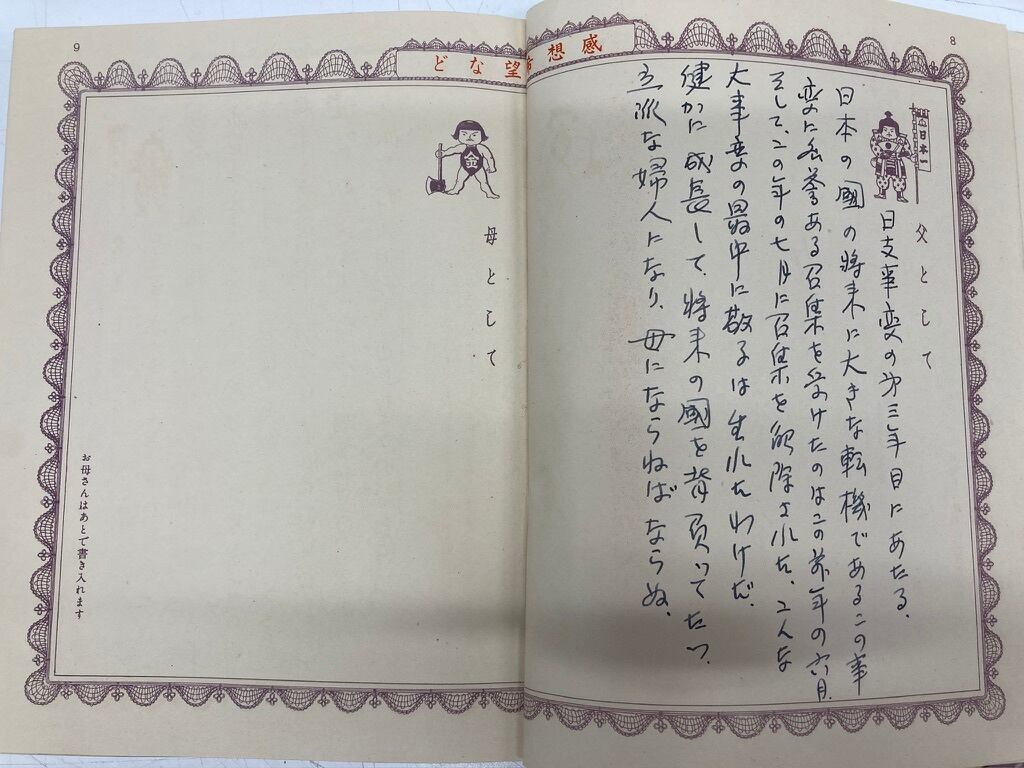 8
感想希望など
日本一
父として
日支事変の第三年目にあたる。
日本の國の將来に大きな転機であるこの事
変に名誉ある召集を受けたのはこの前年の六月
そして、この年の七月に召集を解除された。こんな
大事変の最中に敬子は生れたわけだ。
健かに成長して、將来の國を背負ってたつ、
立派な婦人になり、母にならねばならぬ。
9
金
母として
お母さんはあとで書き入れます